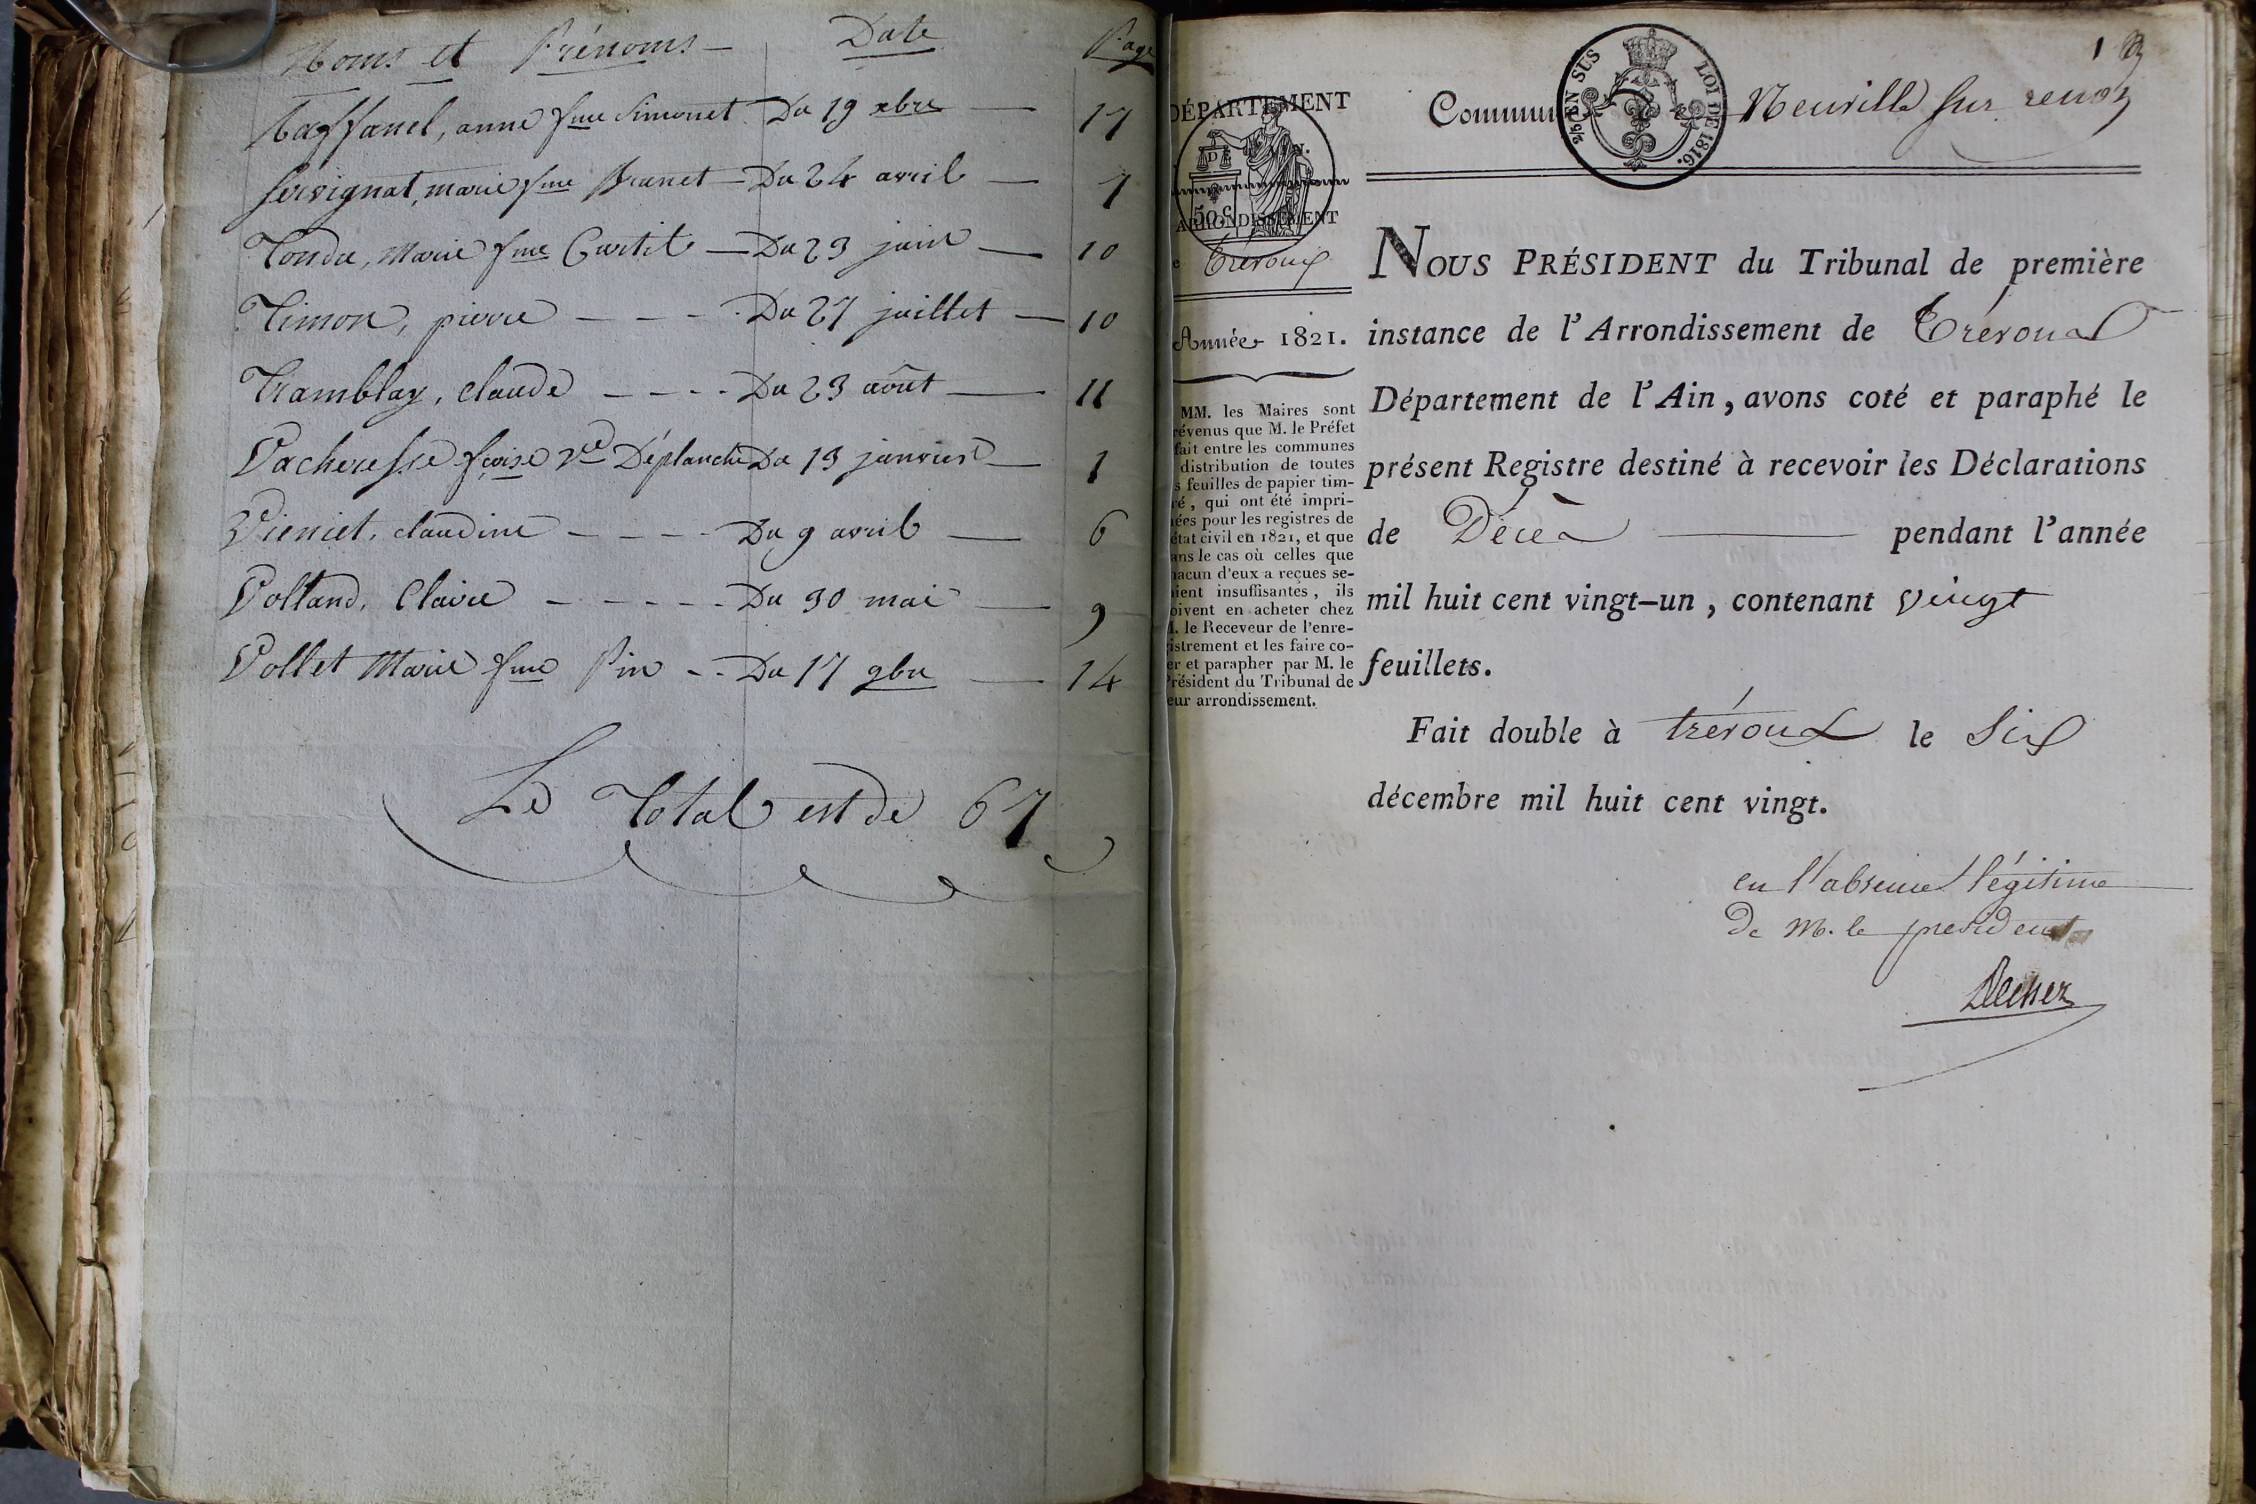 Noms et Prénoms — Date Page
Raffanel, anne fme Simonet Du 19 xbre — 17
Servignat, marie fme Brunet — Du 24 avril — 7
Tondu, Marie fme Curtil — Du 23 juin — 10
Timon, pierre - - - - Du 27 juillet — 10
Tramblay, claude - - - - Du 23 août — 11
Vacheresse fçoise Ve Déplanche Du 13 janvier — 1
Vieniet, claudine - - - - Du 9 avril — 6
Volland, Claire - - - - - Du 30 mai — 9
Vollet Marie fme Pin - - Du 17 9bre — 14
Le Total est de 67
1
DÉPARTEMENT
2/5 EN SUS
LOI DE 1816.
50 C
ARRONDISSEMENT
Trévoux
Année 1821.
MM. les Maires sont
révenus que M. le Préfet
fait entre les communes
distribution de toutes
s feuilles de papier tim-
ré, qui ont été impri-
ées pour les registres de
état civil en 1821, et que
ans le cas où celles que
hacun d'eux a reçues se-
oient insuffisantes, ils
oivent en acheter chez
M. le Receveur de l'enre-
istrement et les faire co-
er et parapher par M. le
Président du Tribunal de
eur arrondissement.
Commun Neuville sur renon
NOUS PRÉSIDENT du Tribunal de première
instance de l'Arrondissement de Trévoux
Département de l'Ain, avons coté et paraphé le
présent Registre destiné à recevoir les Déclarations
de Décès — pendant l'année
mil huit cent vingt-un, contenant vingt
feuillets.
Fait double à trévoux le Six
décembre mil huit cent vingt.
en l'absence légitime
de M. le president